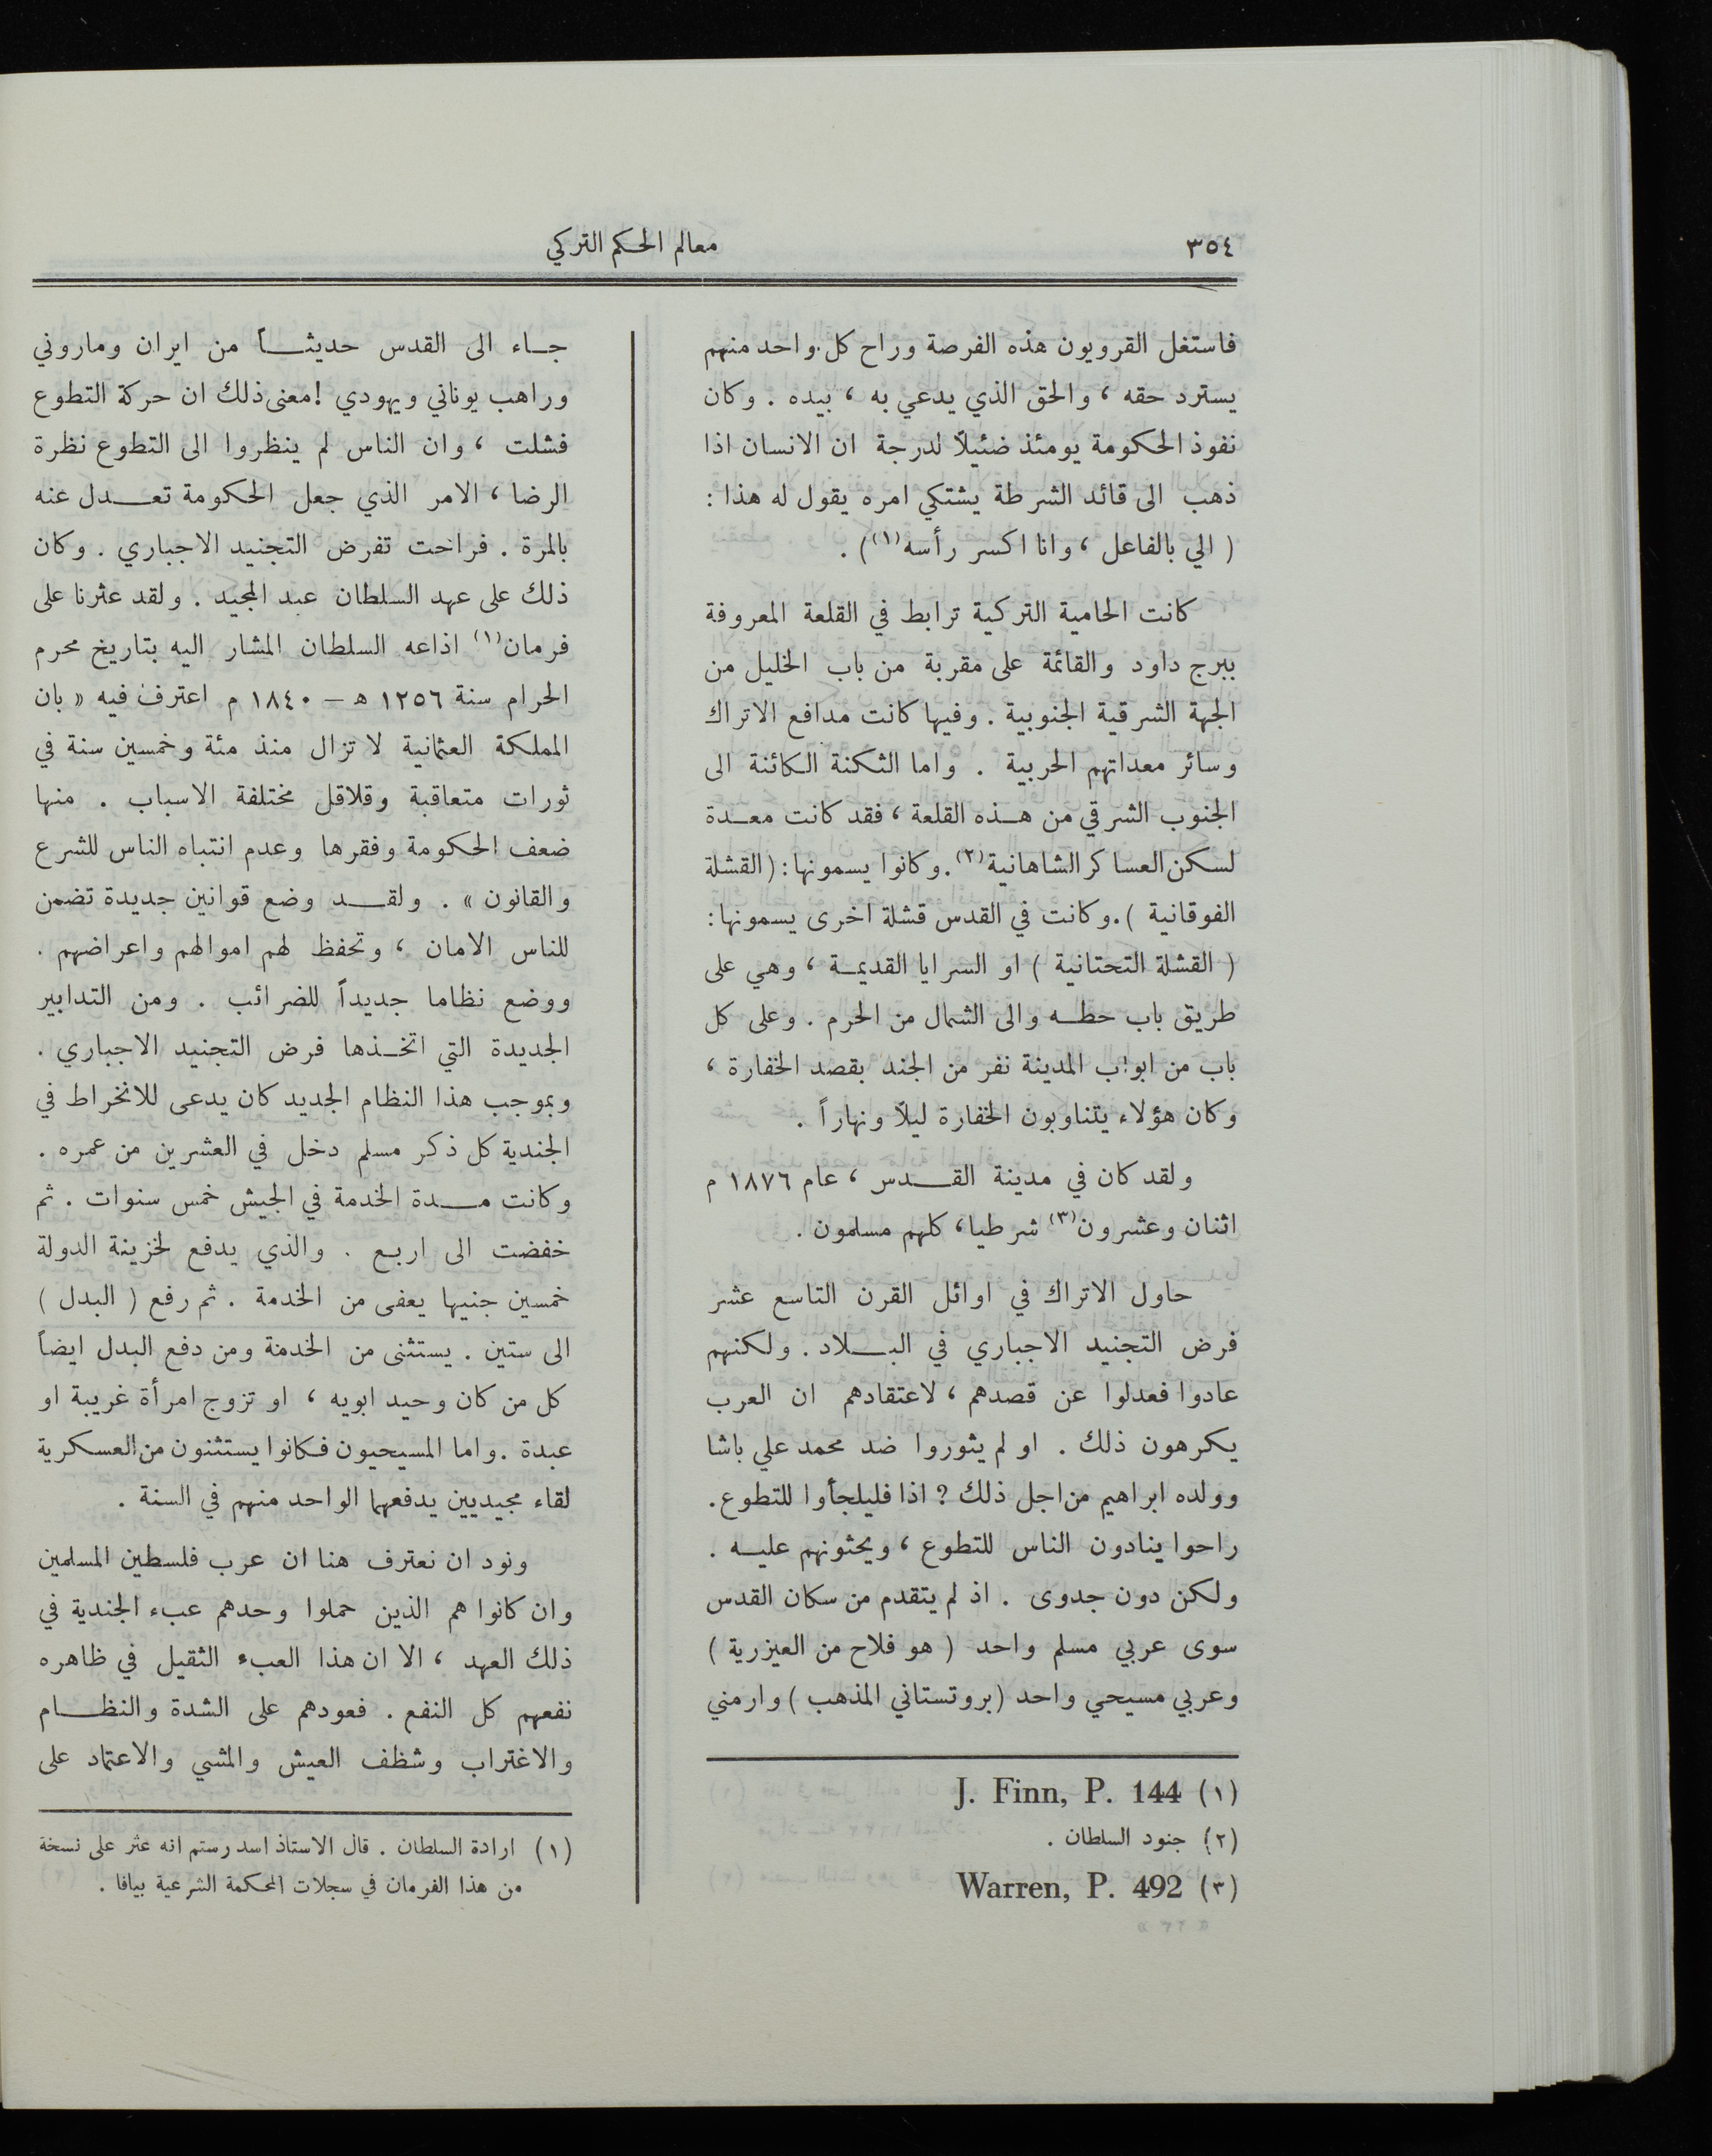 ٣٥٤
معالم الحكم التركي
فاستغل القرويون هذه الفرصة وراح كل واحد منهم
يسترد حقه ، والحق الذي يدعي به ، بيده . وكان
نفوذ الحكومة يومئذ ضئيلًا لدرجة ان الانسان اذا
ذهب الى قائد الشرطة يشتكي امره يقول له هذا :
( الي بالفاعل ، وانا اكسر رأسه(١) ) .
كانت الحامية التركية ترابط في القلعة المعروفة
ببرج داود والقائمة على مقربة من باب الخليل من
الجهة الشرقية الجنوبية . وفيها كانت مدافع الاتراك
وسائر معداتهم الحربية . واما الثكنة الكائنة الى
الجنوب الشرقي من هـذه القلعة ، فقد كانت معـدة
لسكن العساكر الشاهانية(٢) . وكانوا يسمونها : ( القشلة
الفوقانية ) . وكانت في القدس قشلة اخرى يسمونها :
( القشلة التحتانية ) او السرايا القديمـة ، وهي على
طريق باب حطـه والى الشمال من الحرم . وعلى كل
باب من ابواب المدينة نفر من الجند بقصد الخفارة ،
وكان هؤلاء يتناوبون الخفارة ليلًا ونهاراً .
ولقد كان في مدينة القـــدس ، عام ١٨٧٦ م
اثنان وعشرون(٣) شرطيا ، كلهم مسلمون .
حاول الاتراك في اوائل القرن التاسع عشر
فرض التجنيد الاجباري في البـــلاد . ولكنهم
عادوا فعدلوا عن قصدهم ، لاعتقادهم ان العرب
يكرهون ذلك . او لم يثوروا ضد محمد علي باشا
وولده ابراهيم من اجل ذلك ؟ اذا فليلجأوا للتطوع .
راحوا ينادون الناس للتطوع ، ويحثونهم عليـه .
ولكن دون جدوى . اذ لم يتقدم من سكان القدس
سوى عربي مسلم واحد ( هو فلاح من العيزرية )
وعربي مسيحي واحد ( بروتستاني المذهب ) وارمني
(١) J. Finn, P. 144
(٢) جنود السلطان .
(٣) Warren, P. 492
جـاء الى القدس حديثــاً من ايران وماروني
وراهب يوناني ويهودي ! معنى ذلك ان حركة التطوع
فشلت ، وان الناس لم ينظروا الى التطوع نظرة
الرضا ، الامر الذي جعل الحكومة تعـــدل عنه
بالمرة . فراحت تفرض التجنيد الاجباري . وكان
ذلك على عهد السلطان عبد المجيد . ولقد عثرنا على
فرمان(١) اذاعه السلطان المشار اليه بتاريخ محرم
الحرام سنة ١٢٥٦ ه – ١٨٤٠ م اعترف فيه « بان
المملكة العثمانية لا تزال منذ مئة وخمسين سنة في
ثورات متعاقبة وقلاقل مختلفة الاسباب . منها
ضعف الحكومة وفقرها وعدم انتباه الناس للشرع
والقانون » . ولقـــد وضع قوانين جديدة تضمن
للناس الامان ، وتحفظ لهم اموالهم واعراضهم .
ووضع نظاما جديداً للضرائب . ومن التدابير
الجديدة التي اتخـذها فرض التجنيد الاجباري .
وبموجب هذا النظام الجديد كان يدعى للانخراط في
الجندية كل ذكر مسلم دخل في العشرين من عمره .
وكانت مـــدة الخدمة في الجيش خمس سنوات . ثم
خفضت الى اربـع . والذي يدفع لخزينة الدولة
خمسين جنيها يعفى من الخدمة . ثم رفع ( البدل )
الى ستين . يستثنى من الخدمة ومن دفع البدل ايضاً
كل من كان وحيد ابويه ، او تزوج امرأة غريبة او
عبدة . واما المسيحيون فكانوا يستثنون من العسكرية
لقاء مجيديين يدفعهما الواحد منهم في السنة .
ونود ان نعترف هنا ان عرب فلسطين المسلمين
وان كانوا هم الذين حملوا وحدهم عبء الجندية في
ذلك العهد ، الا ان هذا العبء الثقيل في ظاهره
نفعهم كل النفع . فعودهم على الشدة والنظـــام
والاغتراب وشظف العيش والمشي والاعتماد على
(١) ارادة السلطان . قال الاستاذ اسد رستم انه عثر على نسخة
من هذا الفرمان في سجلات المحكمة الشرعية بيافا .